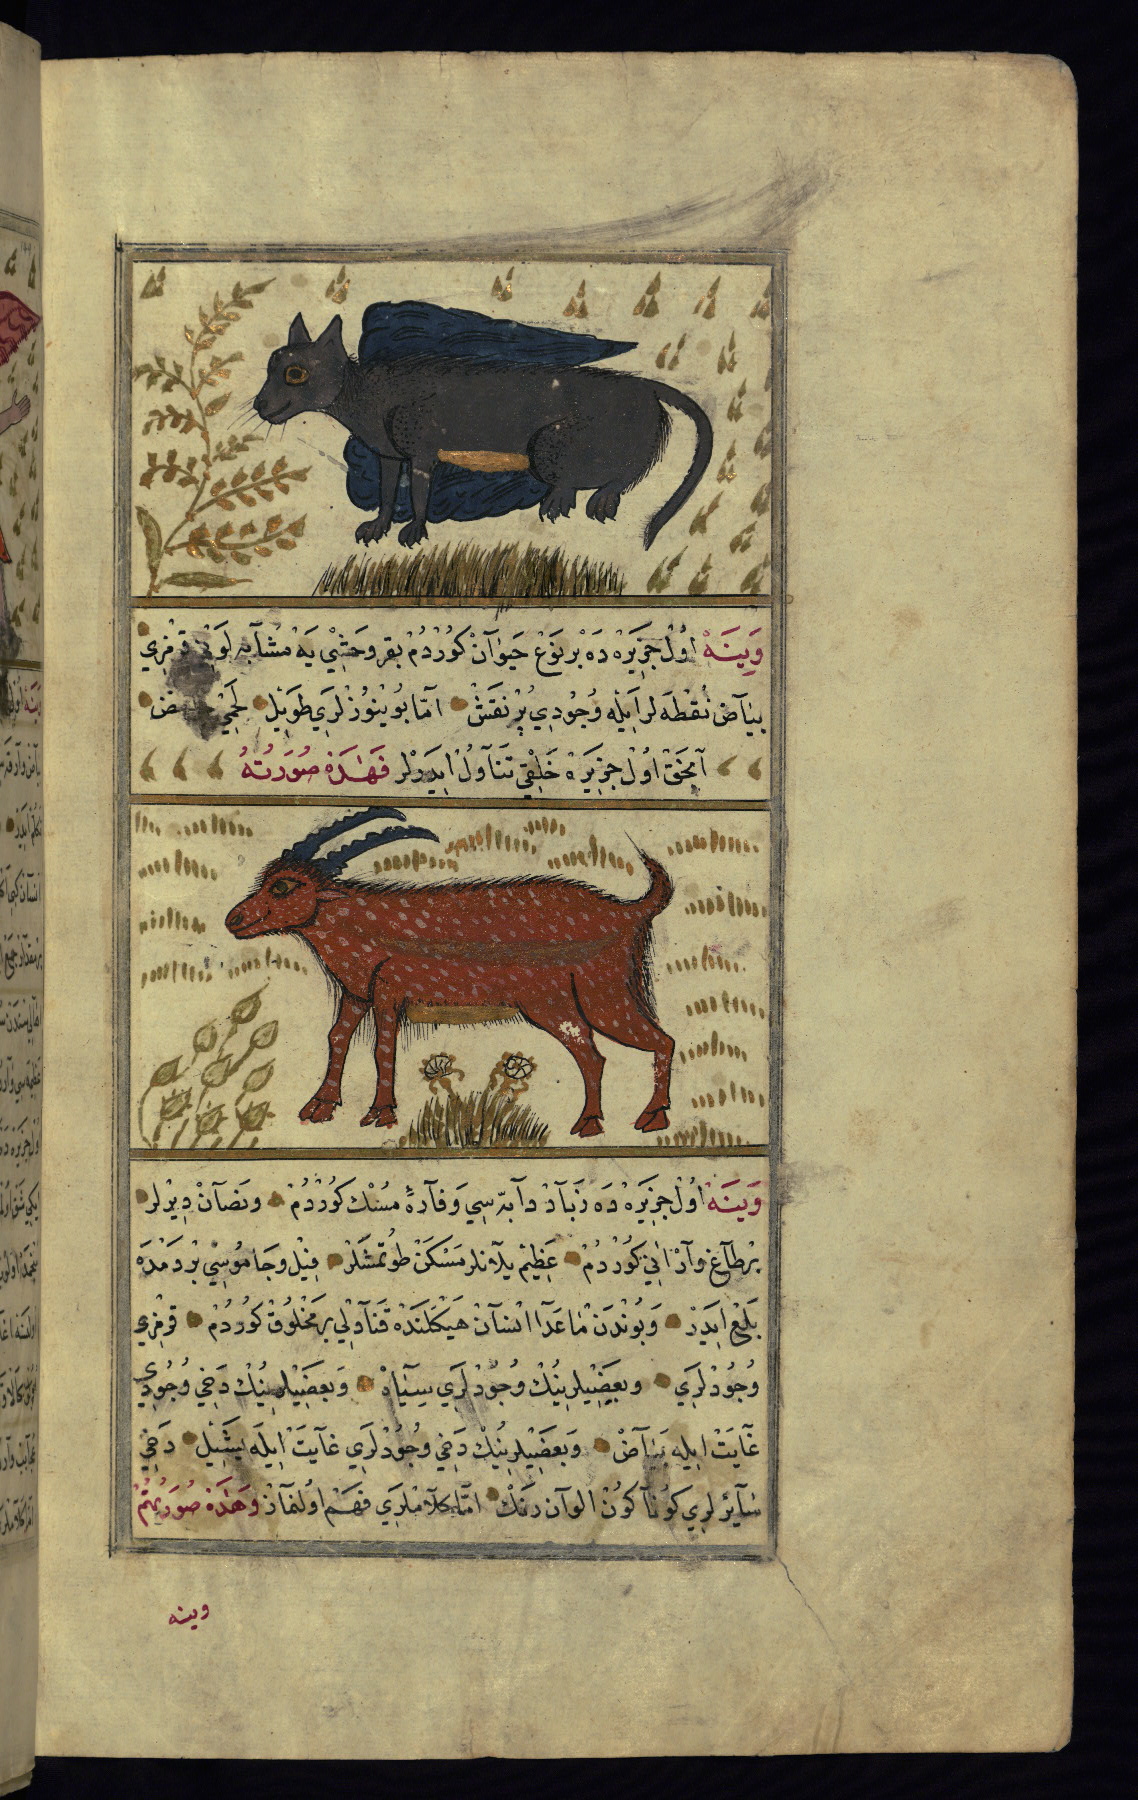 وَيِنَهْ اُوْل جَزِيرَهْ دَهْ بْر نَوْعْ حَيَوانْ كُورْدُمْ بقر وحَشِيْ يَهْ مُشَابِهْ لَوْنِي قِرْمِزِي
بِيَاضْ نُقْطَهْ لَر اَيْلَهْ وُجُودِي پُرْ نَقَشْ اَمَّا بُوْينُوزْلَرِي طَوِيْل لَحْمِي
آنْجَقْ اُوْل جَزِيرَهْ خَلْقِي تَنَاوُلْ اِيدَرْلَر فَهٰذِهْ صُورَتُهُ
وَيِنَهْ اُوْل جَزِيرَهْ دَهْ زَبَادْ دَابَّهْ سِي وَفَارَهْ مُسْك كُورْدُمْ وَيَضَانْ دِيْرْلَر
بِرْ طَاغْ وَارْ اَنِي كُورْدُمْ عَظِيمْ يِلَانْلَر مَسْكَنْ طُوتْمِشْلَرْ فِيْل وَجَامُوسِي بْر دَمْدَهْ
بَلْعْ اِيدَرْ وَبُونْدَنْ مَاعَدَا اِنْسَانْ هَيْكَلِنْدَهْ قَنَادْلِي بِرْ مَخْلُوقْ كُورْدُمْ قِرْمِزِي
وُجُودْلَرِي وَبَعْضِيلَرِينُكْ وُجُودْلَرِي سِيَاهْ وَبَعْضِيلَرِينُكْ دَخِي وُجُودِي
غَايَتْ اِيلَهْ بَيَاضْ وَبَعْضِيلَرِينُكْ دَخِي وُجُودْلَرِي غَايَتْ اِيلَهْ يَشِيْل دَخِي
سَائِرْلَرِي كُونَا كُونْ اَلْوَانْ رَنْك اَمَّا كَلَامْلَرِي فَهْمْ اُولِنْمَازْ وَهٰذِهْ صُورَتُهُمْ
وينه